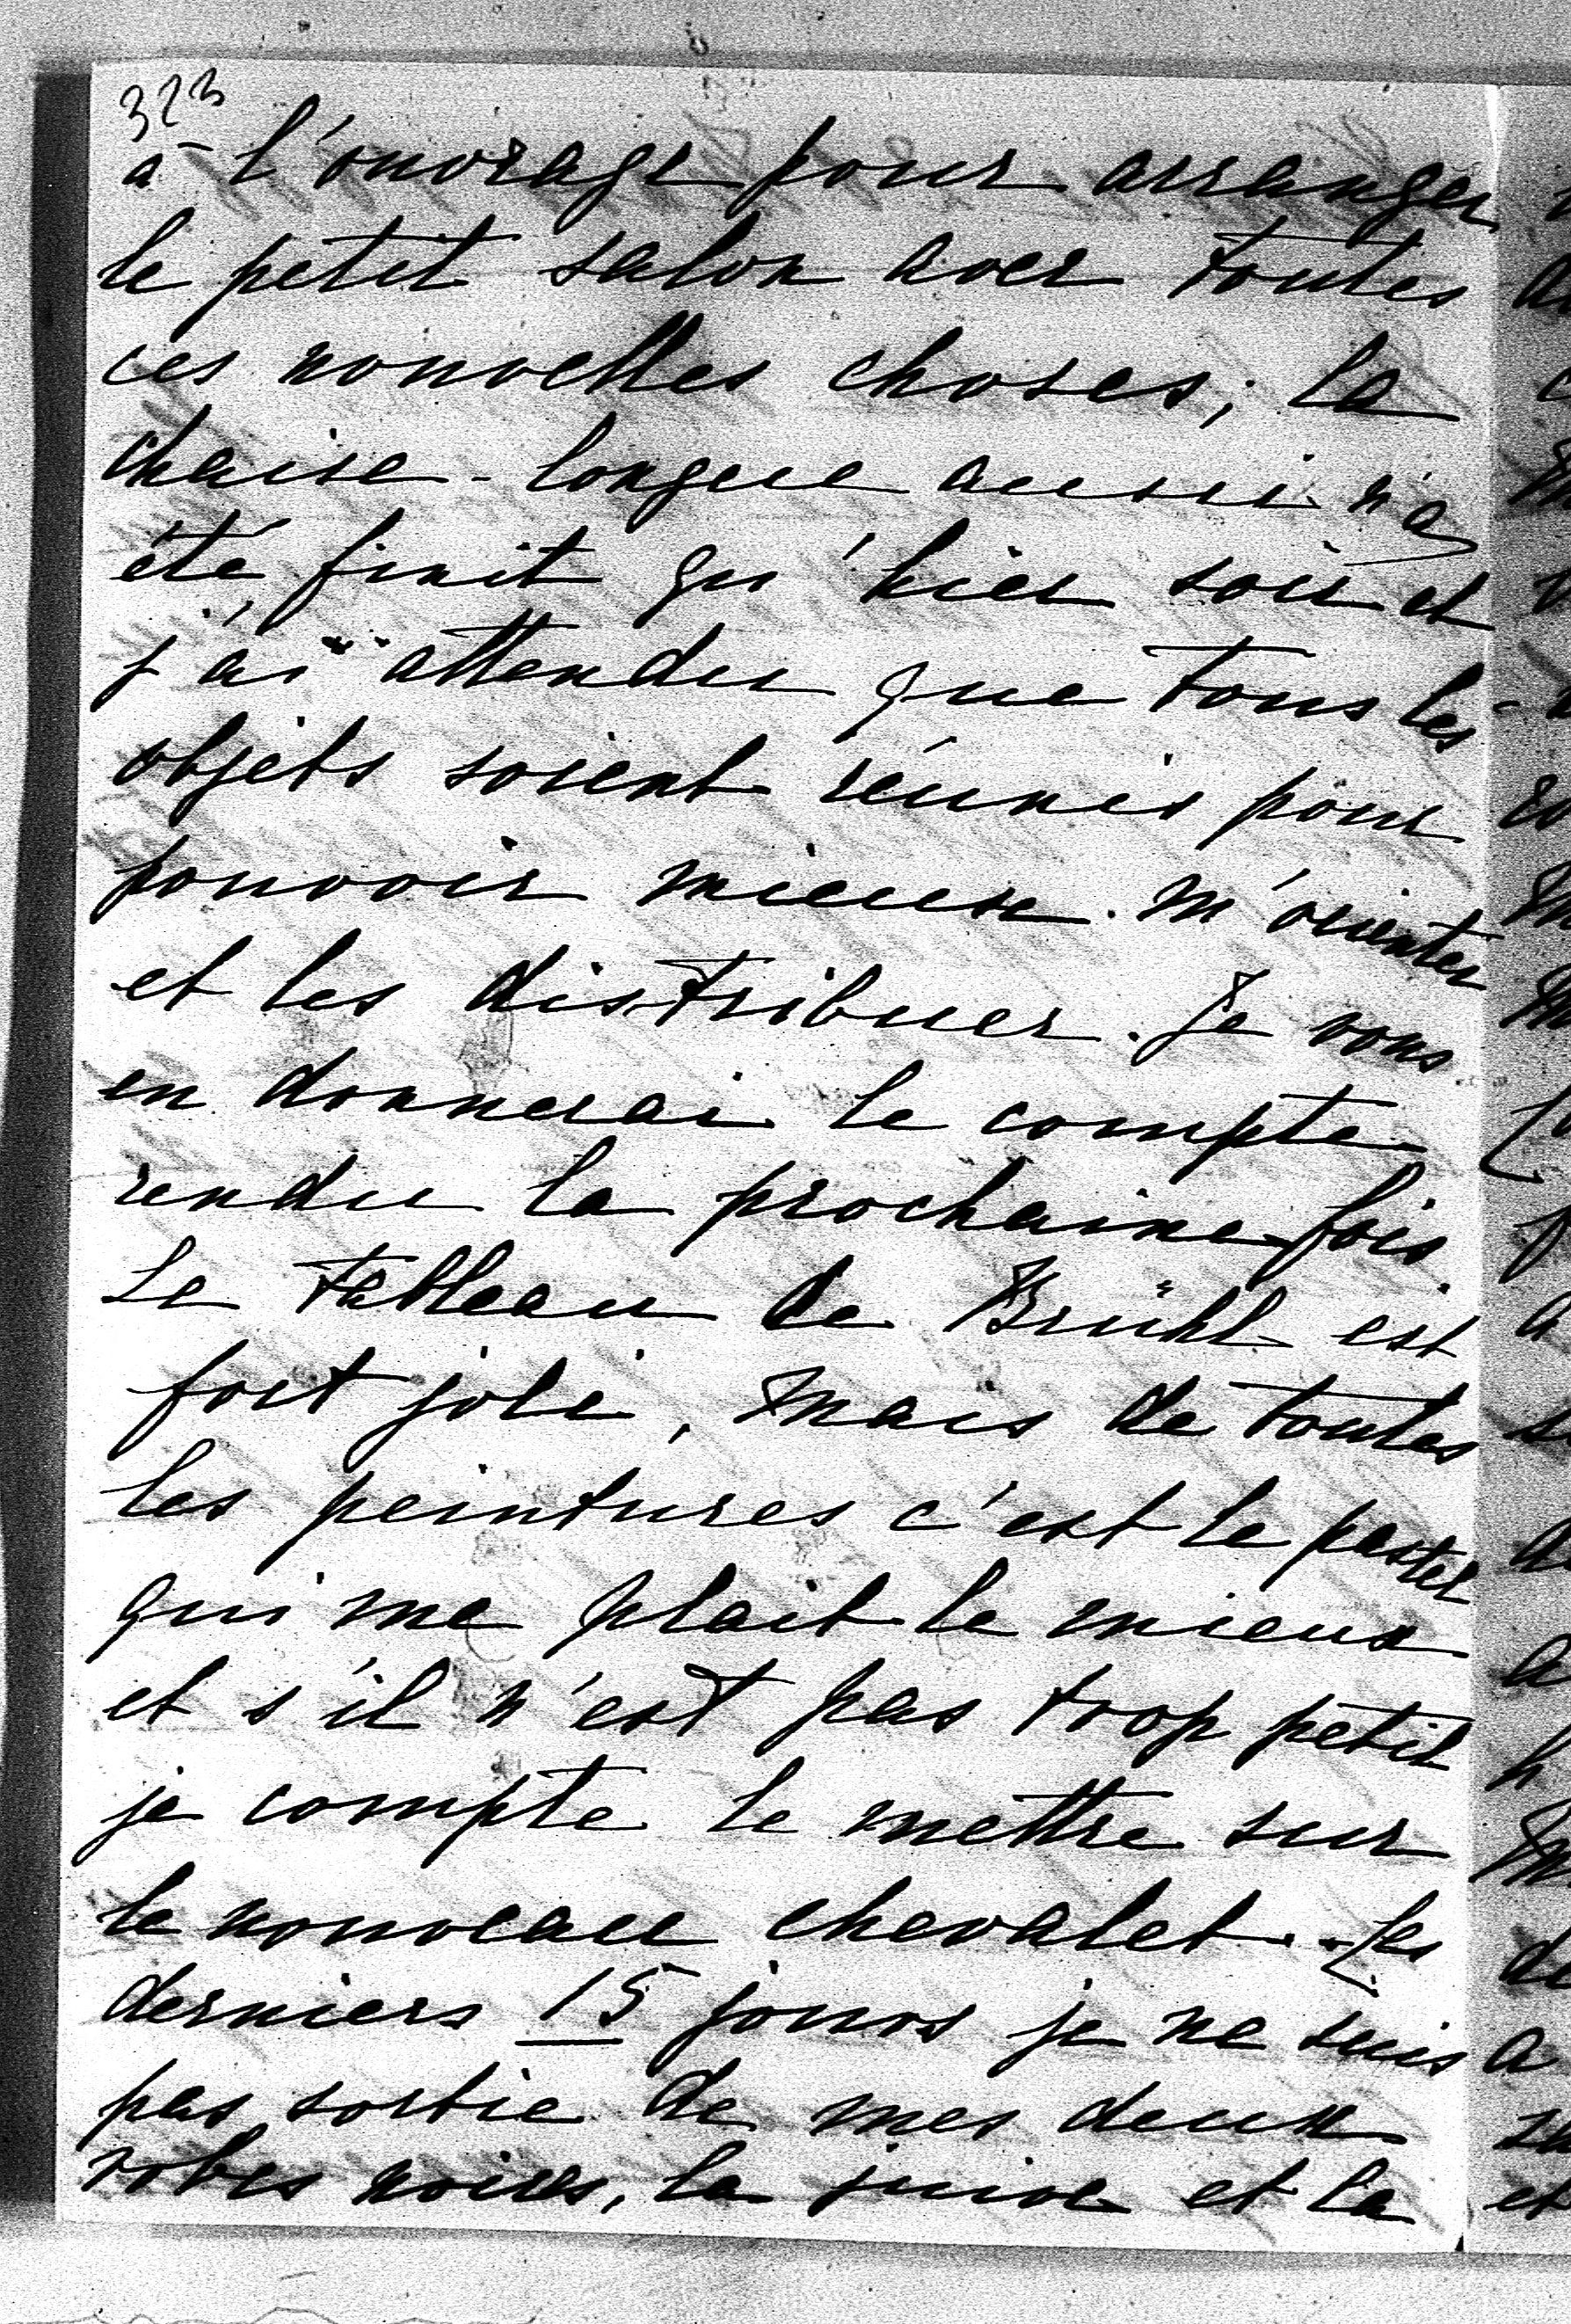 323
à l'ouvrage pour arranger
le petit salon avec toutes
ces nouvelles choses; la
chaise-longue aussi n'a
été finit qu'hier soir et
j'ai attendu que tous les
objets soient réunis pour
pouvoir mieux m'orienter
et les distribuer. Je vous
en donnerai le compte
rendu la prochaine fois.
Le tableau de Brühl est
fort joli, mais de toutes
les peintures c'est le pastel
qui me plait le mieux
et s'il n'est pas trop petit
je compte le mettre sur
le nouveau chevalet. Les
derniers 15 jours je ne suis
pas sortie de mes deux
robes noires, la juive et la